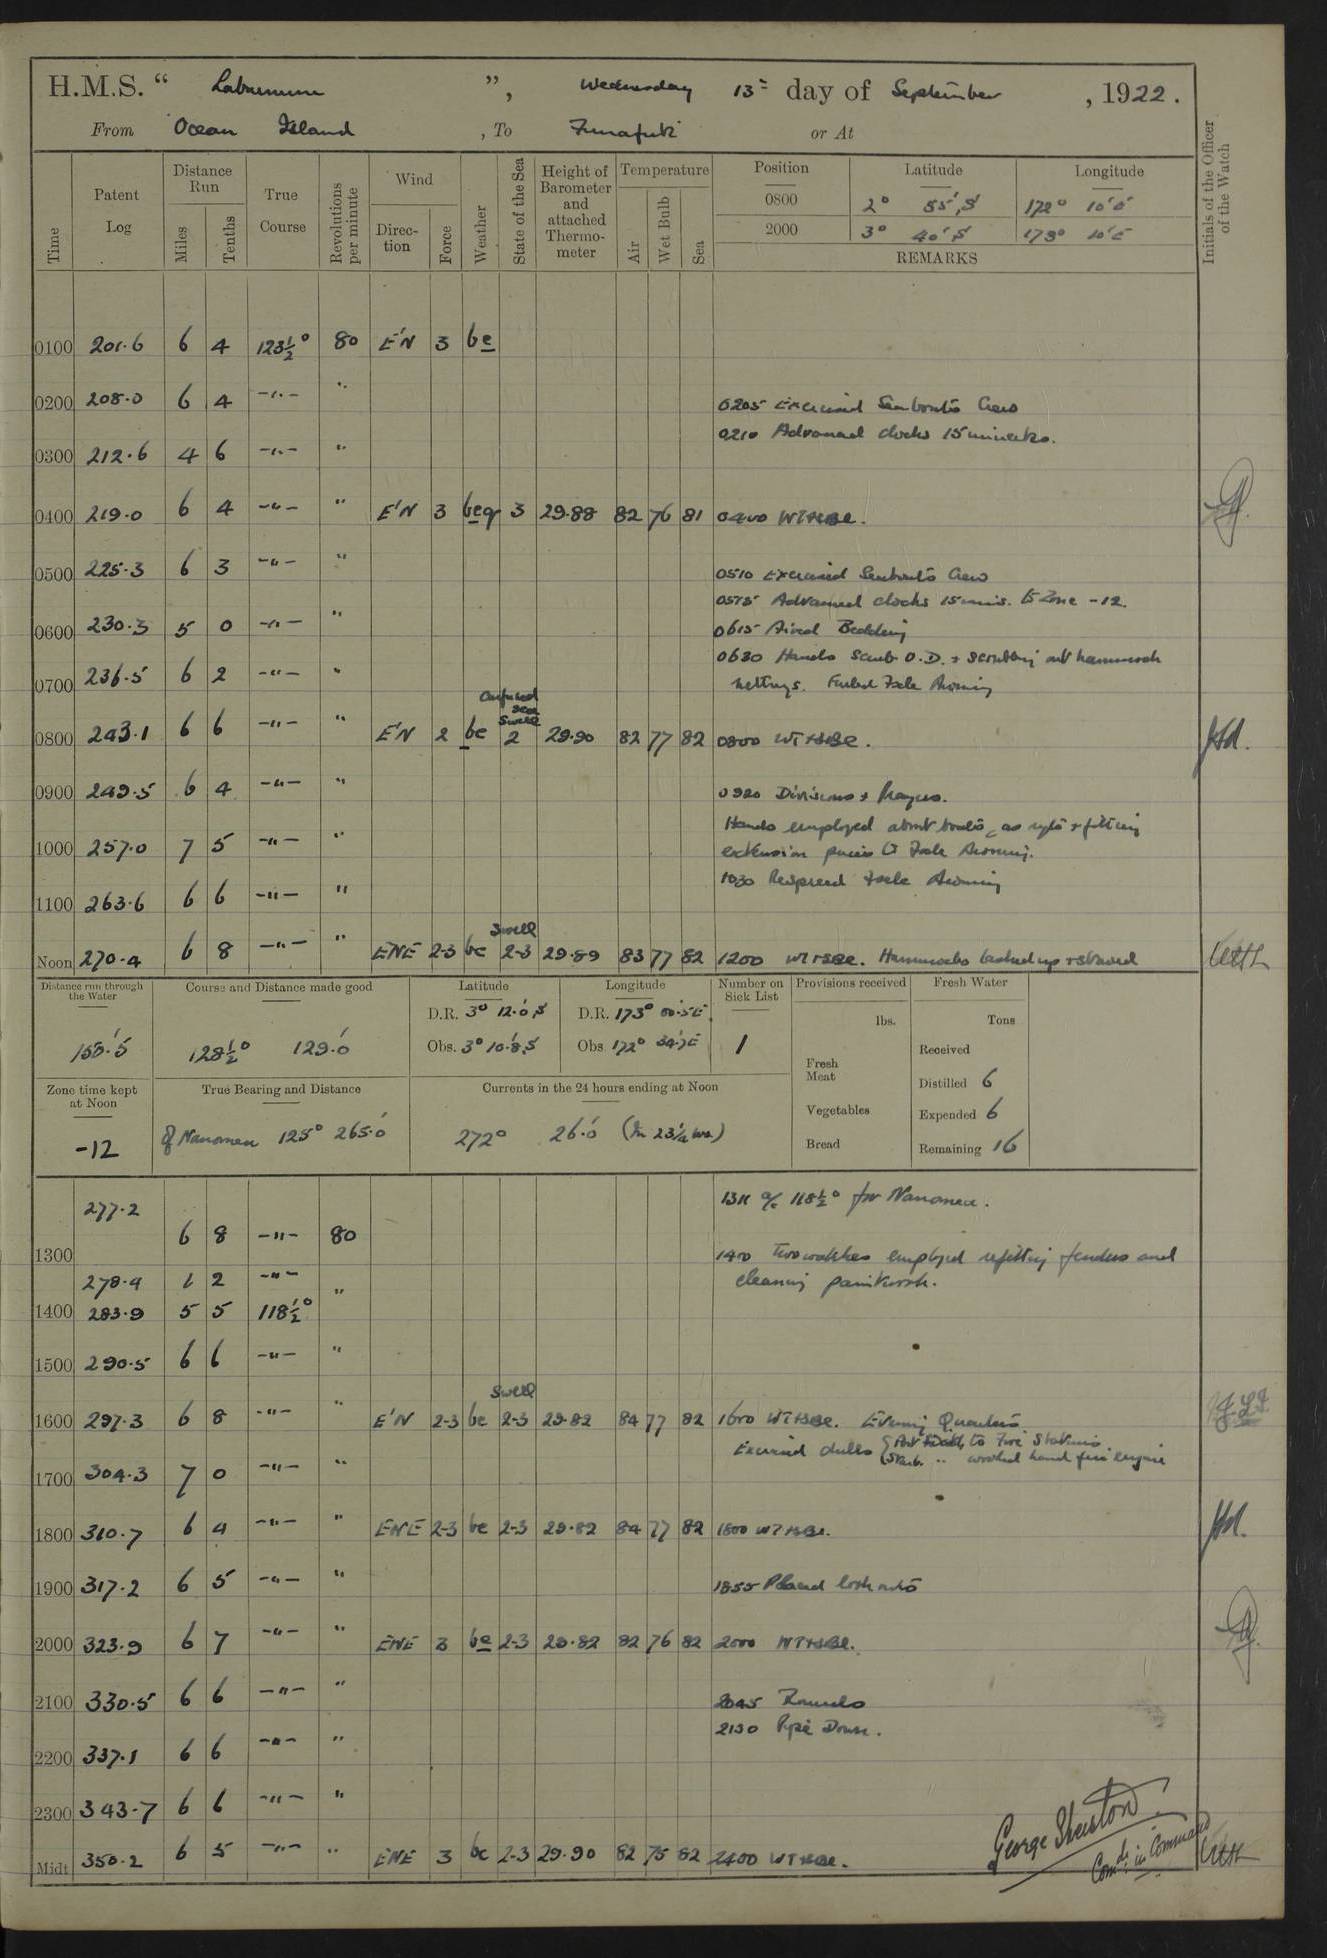 H.M.S. “ Laburnum ”, Wednesday 13th day of September, 1922.
From Ocean Island, To Funafuti or At
Time Patent Log Distance Run Miles Tenths True Course Revolutions per minute Wind Direction Force Weather State of the Sea Height of Barometer and attached Thermometer Temperature Air Wet Bulb Sea Position Latitude Longitude Initials of the Officer of the Watch
0800 2° 55' S 172° 10' E
2000 3° 40' S 173° 10' E
REMARKS
0100 201.6 6 4 123½° 80 E'N 3 bc
0200 208.0 6 4 -"- "
0205 Exercised Seaboats Crew
0210 Advanced clocks 15 minutes.
0300 212.6 4 6 -"- "
0400 219.0 6 4 -"- " E'N 3 bcq 3 29.88 82 76 81 0400 WT+SBE.
0500 225.3 6 3 -"- "
0510 Exercised Seaboats Crew
Advanced clocks 15 mins. to Zone -12.
0600 230.3 5 0 -"- "
0615 Aired Bedding
0630 Hands scrub O.D. + scrubbing out hammock
0700 236.5 6 2 -"- "
nettings. Furled Fxle Awning
Confused sea
Swell
0800 243.1 6 6 -"- " E'N 2 bc 2 29.90 82 77 82 0800 WT+SBE.
0900 249.5 6 4 -"- " 0920 Divisions + Prayers.
Hands employed about boats, as reqte + fitting
1000 257.0 7 5 -"- " extension pieces to Fxle Awning.
1030 Respread Fxle Awning
1100 263.6 6 6 -"- "
Swell
Noon 270.4 6 8 -"- " ENE 2-3 bc 2-3 29.89 83 77 82 1200 WT+SBE. Hammocks lashed up + stowed
Distance run through the Water Course and Distance made good Latitude Longitude Number on Sick List Provisions received Fresh Water
D.R. 3° 12'.0 S D.R. 173° 00'.5 E
155'.5 128½° 129'.0 Obs. 3° 10'.8 S Obs. 172° 34'.7 E 1
lbs. Tons
Fresh Meat Received
Zone time kept at Noon True Bearing and Distance Currents in the 24 hours ending at Noon Distilled 6
Vegetables Expended 6
-12 of Nanomea 125° 265'.0 272° 26'.0 (In 23½ hrs.) Bread Remaining 16
277.2 1311 a/c 118½° for Nanomea.
1300 6 8 -"- 80
1400 Two watches employed refitting fenders and
278.4 1 2 -"- cleaning paintwork.
1400 283.9 5 5 118½° "
1500 290.5 6 6 -"- "
Swell
1600 297.3 6 8 -"- " E'N 2-3 bc 2-3 29.82 84 77 82 1600 WT+SBE. Evening Quarters
Exercised drills { Port Watch to Fire Stations.
Starb. " worked hand fire engine
1700 304.3 7 0 -"- "
1800 310.7 6 4 -"- " ENE 2-3 bc 2-3 29.82 84 77 82 1800 WT+SBE.
1900 317.2 6 5 -"- " 1855 Placed lookouts
2000 323.9 6 7 -"- " ENE 3 bc 2-3 29.82 82 76 82 2000 WT+SBE.
2100 330.5 6 6 -"- " 2045 Rounds
2130 Pipe Down.
2200 337.1 6 6 -"- "
2300 343.7 6 6 -"- "
Midt 350.2 6 5 -"- " ENE 3 bc 2-3 29.90 82 75 82 2400 WT+SBE.
George Sherston
Comdr in Command